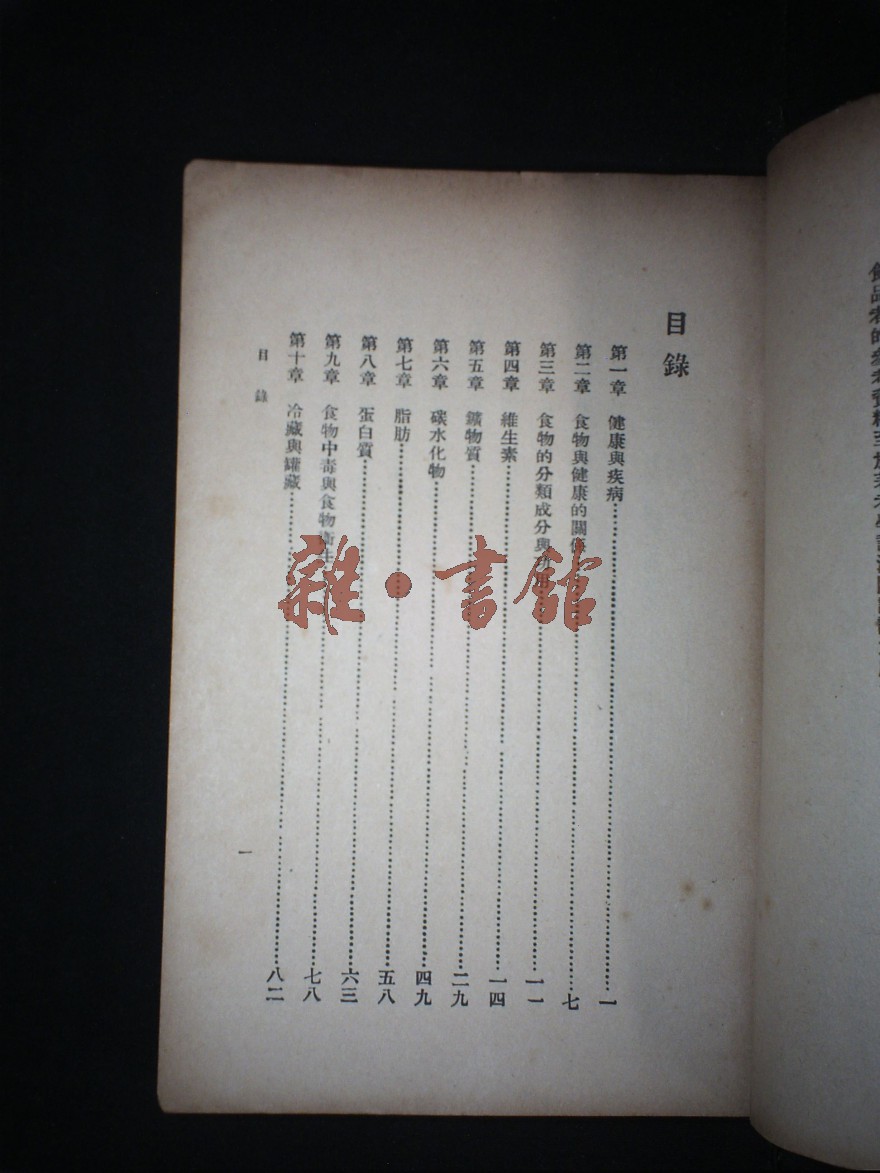 目錄
第一章 健康與疾病……一
第二章 食物與健康的關係……七
第三章 食物的分類成分與功用……一一
第四章 維生素……一四
第五章 鑛物質……二九
第六章 碳水化物……四九
第七章 脂肪……五八
第八章 蛋白質……六三
第九章 食物中毒與食物衞生……七八
第十章 冷藏與罐藏……八二
目錄
一
雜·書館